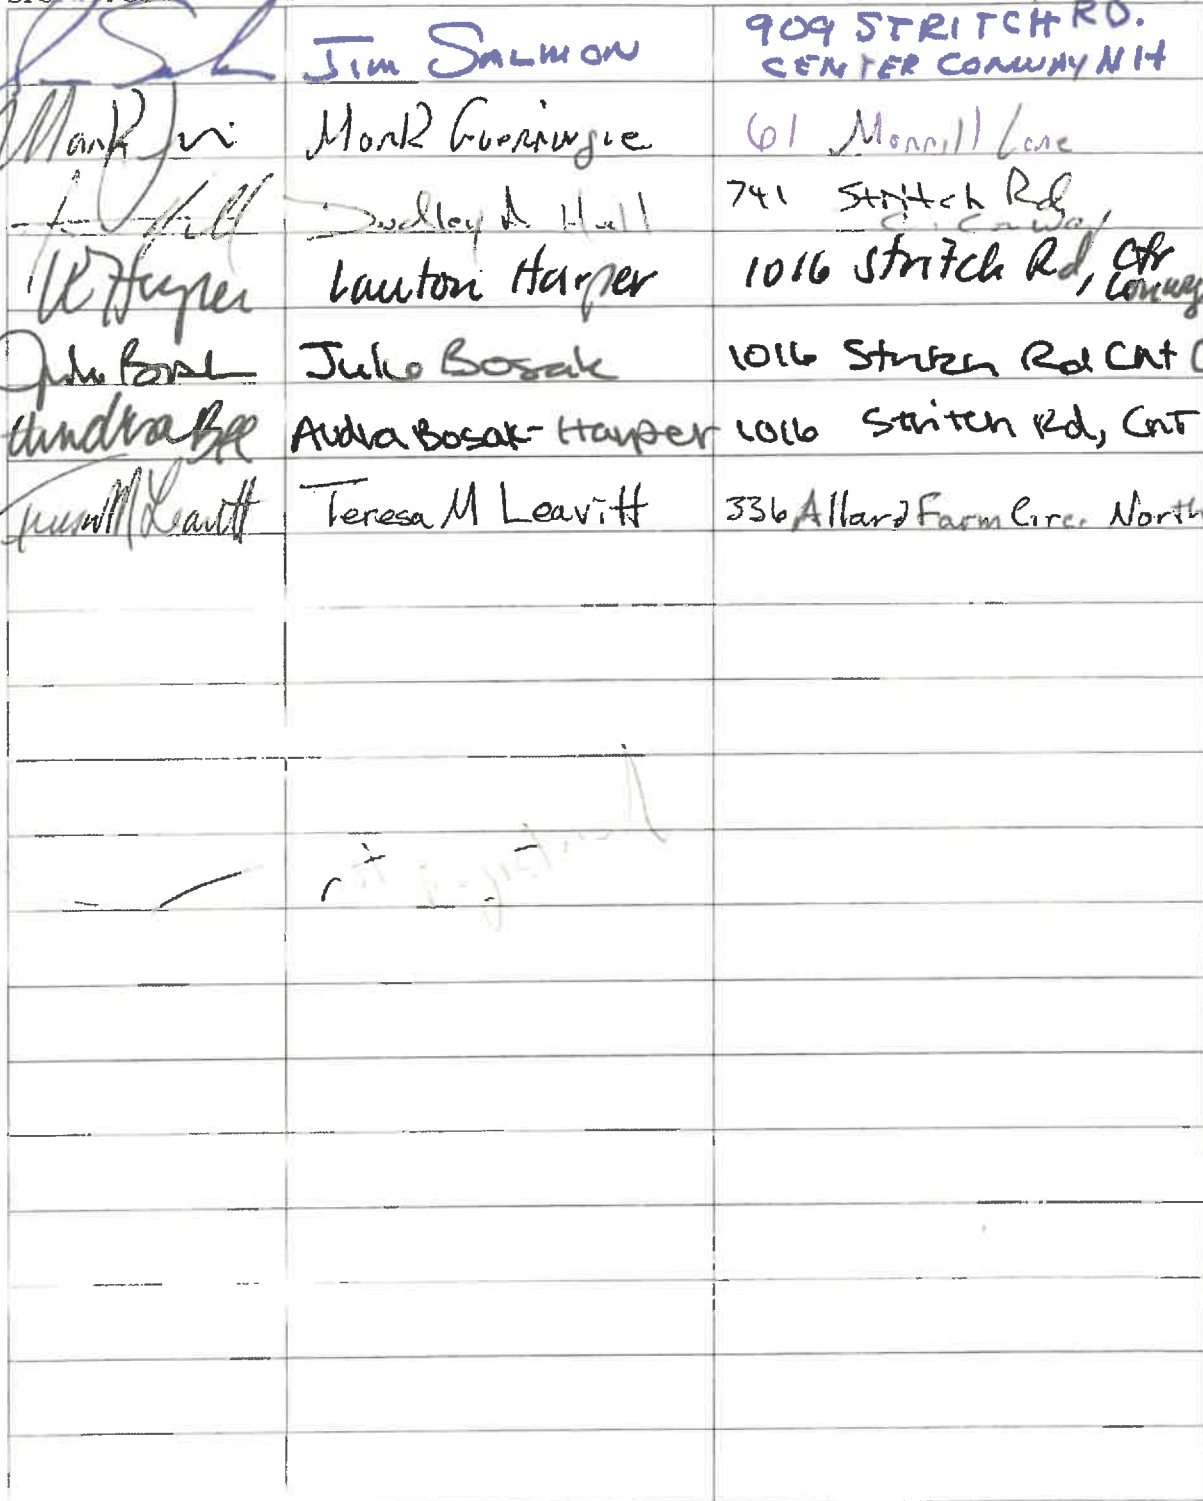 Jim SALMON 909 STRITCH RD.
CENTER CONWAY NH
Mark Guerringue 61 Morrill Lane
Dudley A Hall 741 Stritch Rd
C. Conway
Lawton Harper 1016 Stritch Rd, Ctr
Conway
Julie Bosak 1016 Stritch Rd Cnt C
Audra Bosak-Harper 1016 Stritch Rd, CnT
Teresa M Leavitt Teresa M Leavitt 336 Allard Farm Circ. North